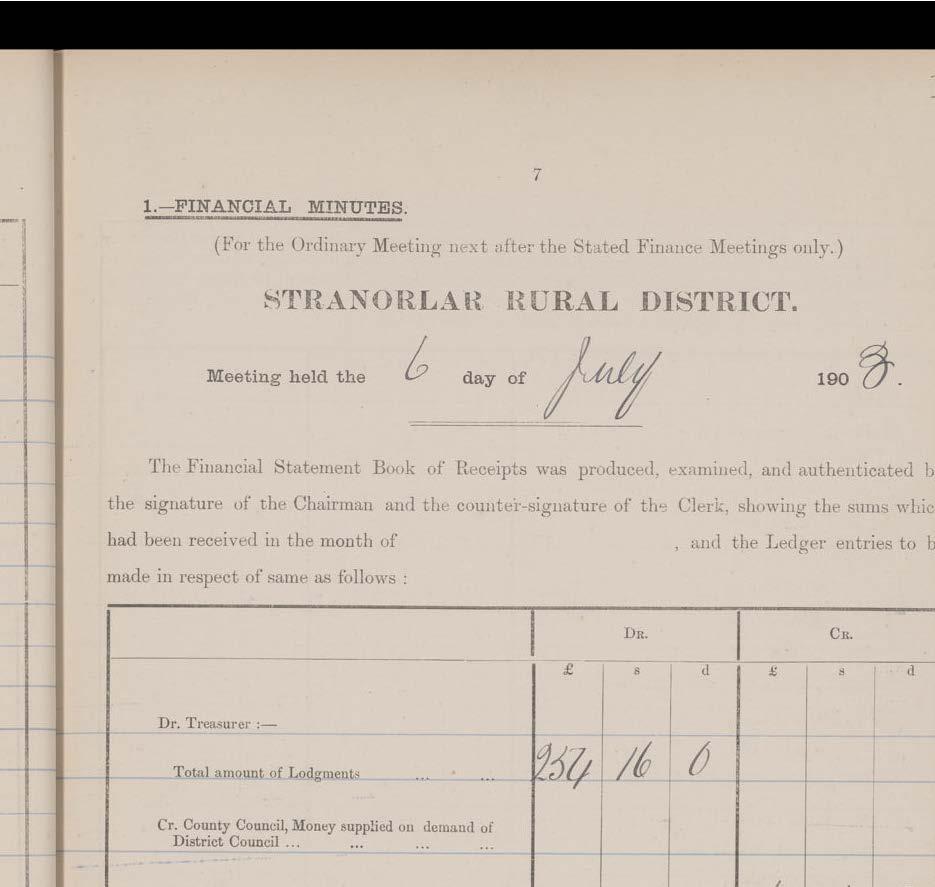 7
1.—FINANCIAL MINUTES.
(For the Ordinary Meeting next after the Stated Finance Meetings only.)
STRANORLAR RURAL DISTRICT.
Meeting held the 6 day of July 1908.
The Financial Statement Book of Receipts was produced, examined, and authenticated b
the signature of the Chairman and the counter-signature of the Clerk, showing the sums whic
had been received in the month of , and the Ledger entries to b
made in respect of same as follows :
DR. CR.
£ s d £ s d
Dr. Treasurer :—
Total amount of Lodgments ... ... 16 0
Cr. County Council, Money supplied on demand of
District Council ... ... ... ...